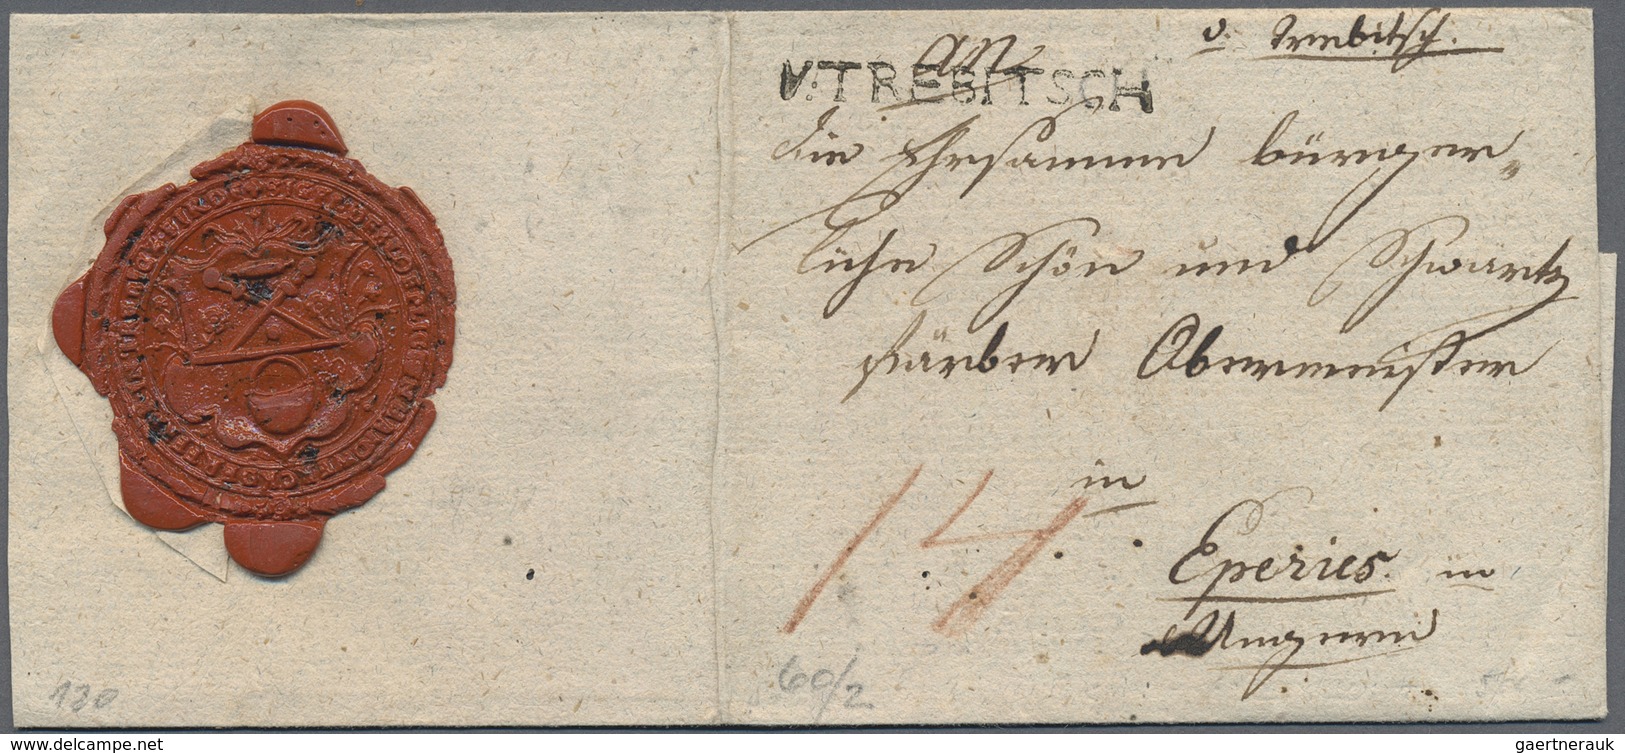 v. Trebitsch.
An
V:TREBITSCH
die Ehrsammen bürger„
liche Schön und Schwartz
färber Obermeister
in
Eperies in
Ungern
14
130
60/2
www.delcampe.net
gaertnerauk